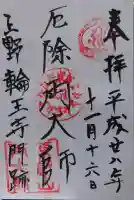 奉拝
平成廿八年
十一月十六日
厄除両大師
上野輪王寺門跡